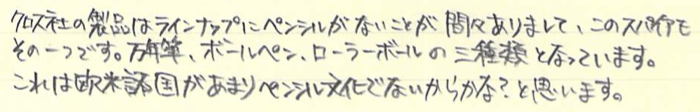 クロス社の製品はラインナップにペンシルがないことが間々ありまして、このスパイアも
その一つです。万年筆、ボールペン、ローラーボールの三種類となっています。
これは欧米諸国があまりペンシル文化でないからかな?と思います。